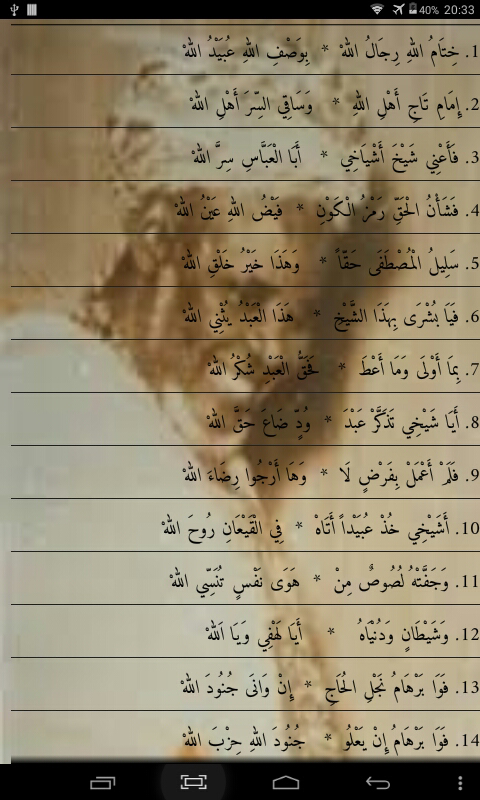 40% 20:33
1. خِتَامُ اللهِ رِجَالُ اللهْ * بِوَصْفِ اللهِ عُبَيْدُ اللهْ
2. إِمَامِ تَاجِ أَهْلِ اللهِ * وَسَاقِي السِّرَ أَهْلِ اللهْ
3. فَأَعْنِي شَيْخَ أَشْيَاخِي * أَبَا الْعَبَّاسِ سِرَّ اللهْ
4. فَشَأْنُ الْحَقِّ رَمْزُ الْكَوْنِ * فَيْضُ اللهِ عَيْنُ اللهْ
5. سَلِيلُ الْمُصْطَفَى حَقّاً * وَهَذَا خَيْرُ خَلْقِ اللهْ
6. فَيَا بُشْرَى بِهَذَا الشَّيْخِ * هَذَا الْعَبْدُ يُثْنِي اللهْ
7. بِمَا أَوْلَى وَمَا أَعْطَ * فَحَقُّ الْعَبْدِ شُكْرُ اللهْ
8. أَيَا شَيْخِي تَذَكَّرْ عَبْدَ * وُدٍّ ضَاعَ حَقَّ اللهْ
9. فَلَمْ أَعْمَلْ بِفَرْضٍ لَا * وَهَا أَرْجُوا رِضَاءَ اللهْ
10. أَشَيْخِي خُذْ عُبَيْداً أَتَاهْ * فِي الْقَيْعَانِ رُوحَ اللهْ
11. وَجَفَّتْهُ لُصُوصٌ مِنْ * هَوَى نَفْسٍ تُنَسِّي اللهْ
12. وَشَيْطَانٍ وَدُنْيَاهُ * أَيَا لَهْفِي وَيَا اَللهْ
13. فَوَا بَرْهَامُ نَجْلِ الْحَاجِ * إِنْ وَانَى جُنُودَ اللهْ
14. فَوَا بَرْهَامُ إِنْ يَعْلُو * جُنُودَ اللهِ حِزْبَ اللهْ